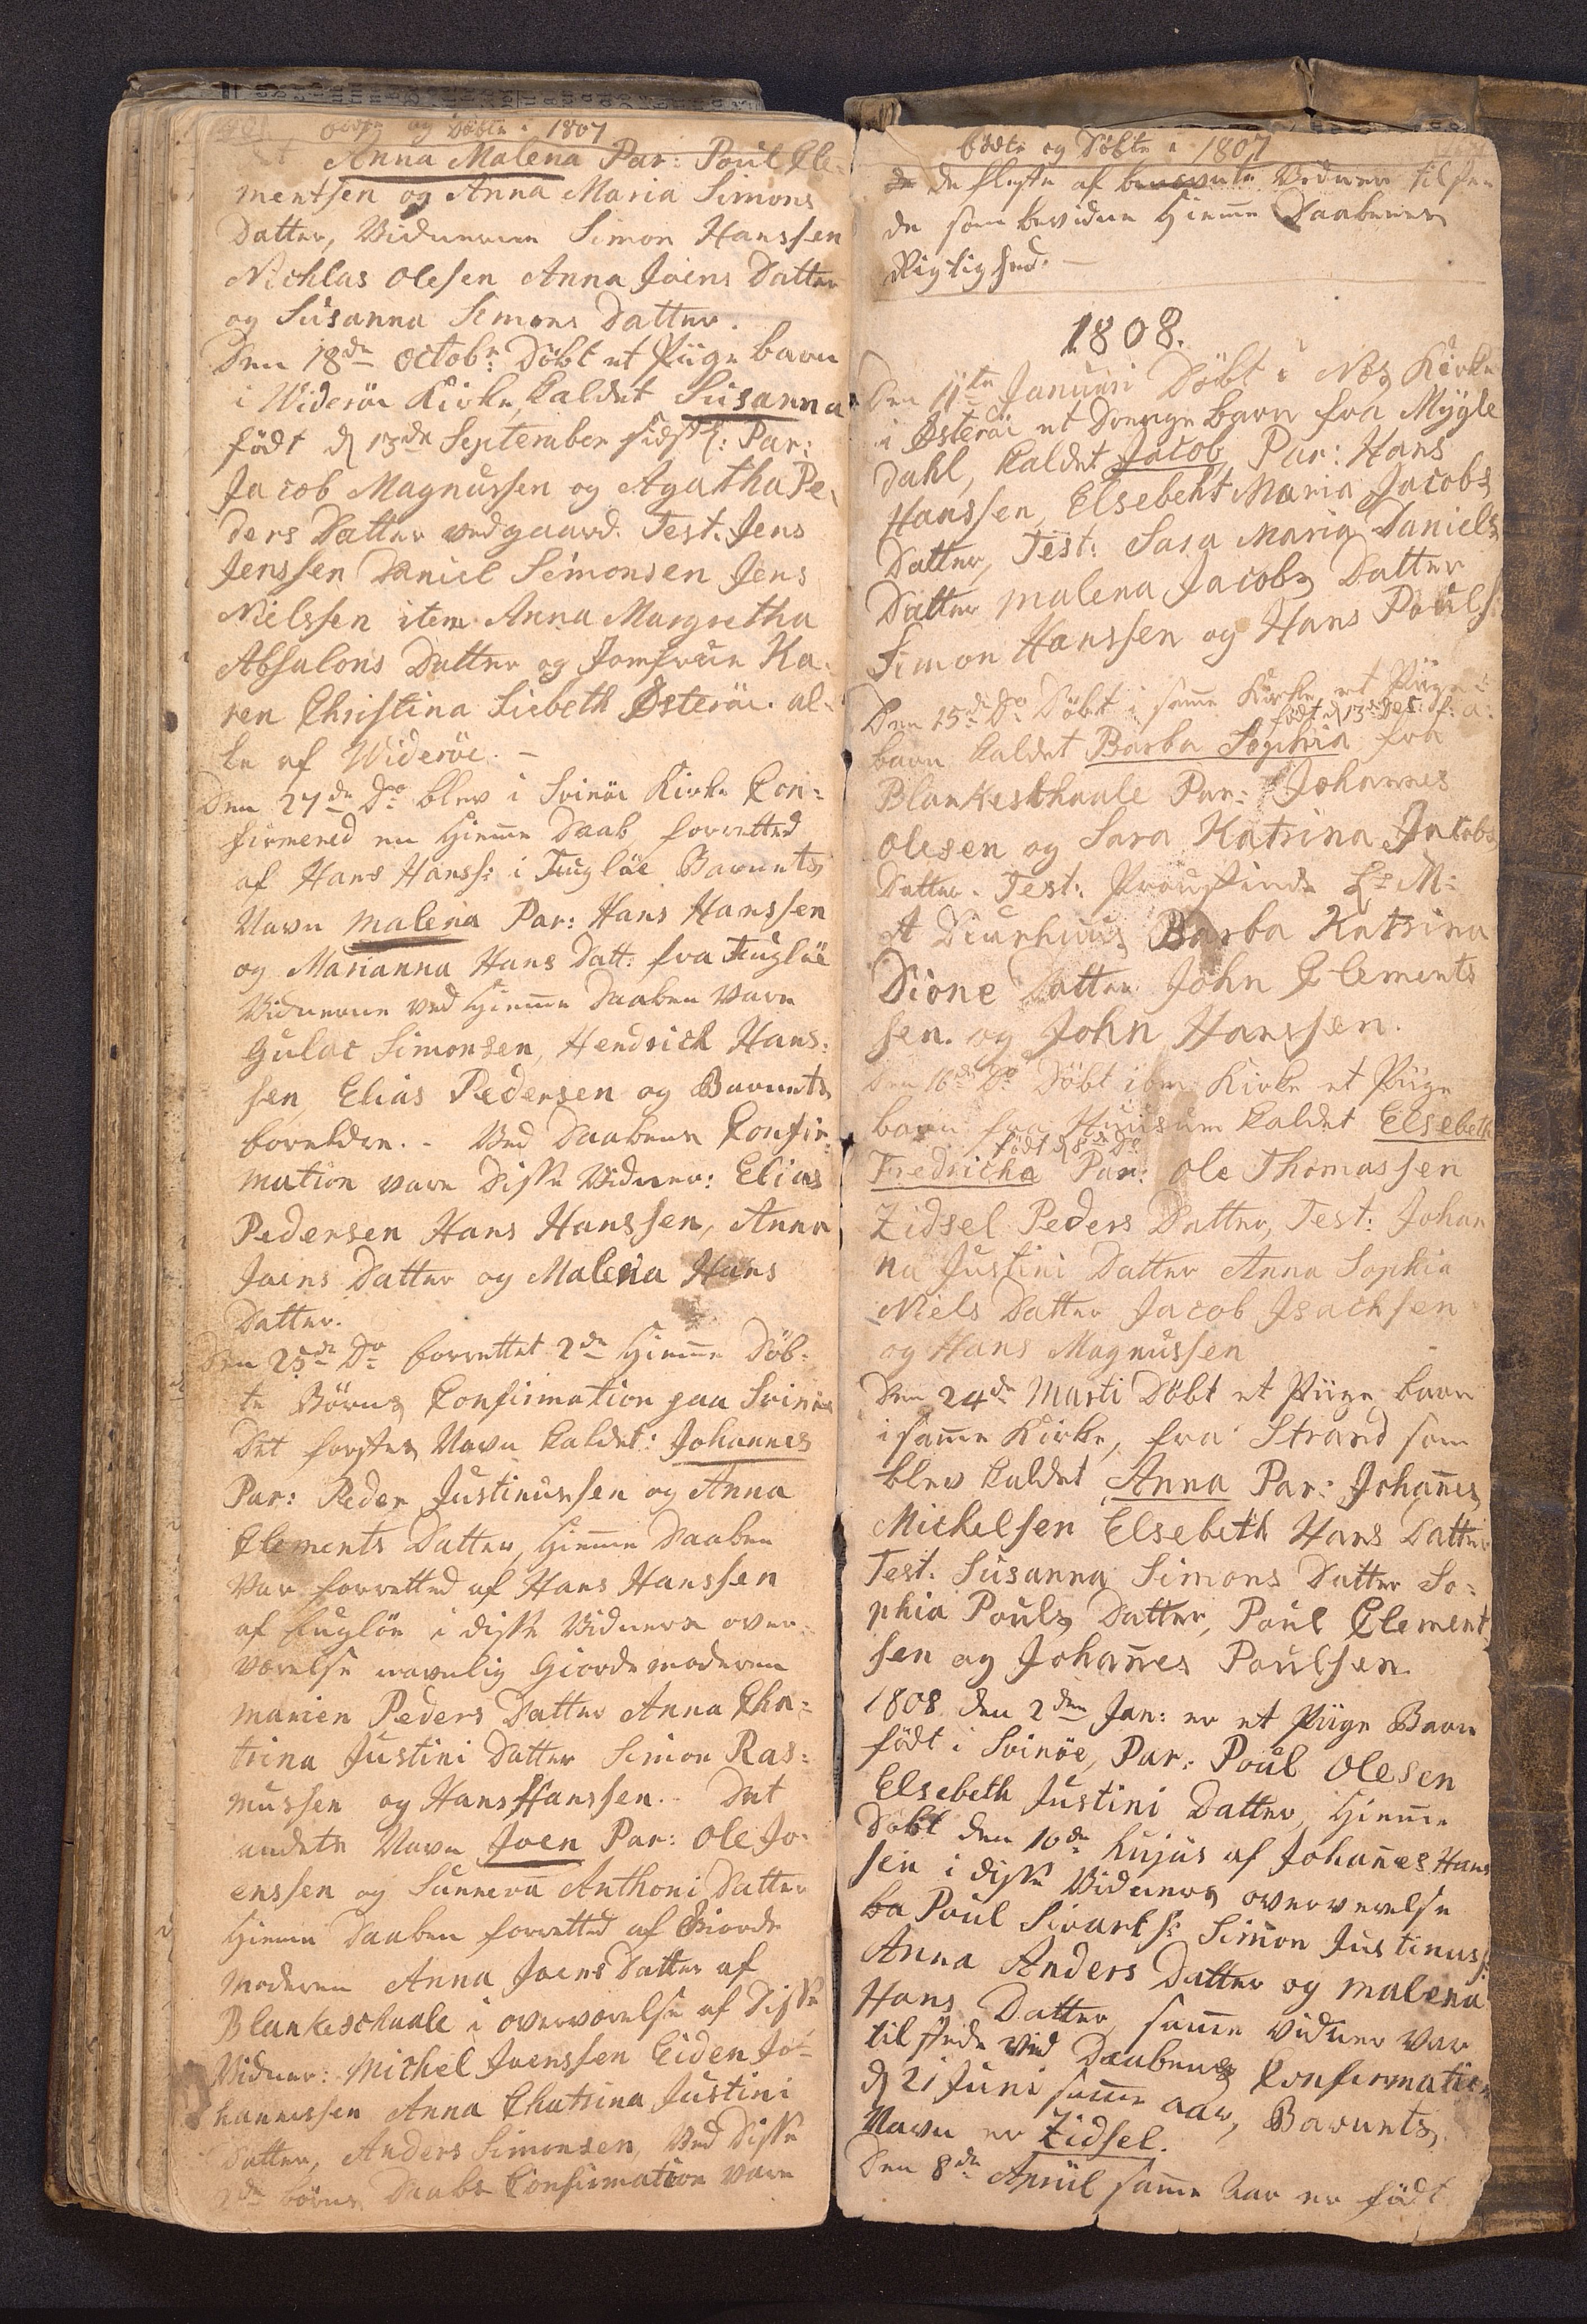 födte og Döbte i 1807
Anna Malena Par: Poul Cle-
mentsen og Anna Maria Simons
Datter, Vidnerne Simon Hanssen
Nichlas Olesen Anna Joens Datter
og Susanna Simons Datter.
Den 18de Octobr: Döbt et Piige barn
i Wideröe Kirke, kaldet Susanna
födt d 13de September sidstl: Par:
Jacob Magnussen og Agatha Pe-
ders Datter vedgaard. Test. Jens
Jenssen Daniel Simonsen Jens
Nielssen item Anna Margretha
Absalons Datter og Jomfrue Ka-
ren Christina Liebeth Österöe. al-
le af Wideröe. -
Den 27de Do blev i Svinöe Kirke Con-
firmered en Hiemme Daab forretted
af Hans Hanss: i Fuglöe Barnets
Navn Malena Par: Hans Hanssen
og Marianna Hans Datt: fra Fuglöe
Vidnerne ved Hiemme Daaben vare
Gulac Simonsen, Hendrich Hans-
sen, Elias Pedersen og Barnets
foreldre. - Ved Daabens Confir-
mation vare Disse Vidner: Elias
Pedersen Hans Hanssen, Anna
Joens Datter og Malena Hans
Datter.
Den 25de Do forrettet 2de Hiemme Döb-
te Börns Confirmation paa Svinöe
Det förstes Navn kaldet: Johannes
Par: Peder Justinussen og Anna
Clements Datter, Hiemme Daaben
var forretted af Hans Hanssen
af Fuglöe i disse Vidners over-
værelse navnlig Giordemoderen
Marien Peders Datter Anna Cha-
trina Justini Datter Simon Ras-
mussen og Hans Hanssen. - Det
andets Navn Joen Par: Ole Jo-
enssen og Sunneva Anthoni Datter
Hiemme Daaben forretted af Giorde
moderen Anna Joens Datter af
Blankeschaale i overværelse af Disse
Vidner: Michel Joenssen Eiden Jo-
hannessen Anna Chatrina Justini
Datter, Anders Simonsen, Ved Disse
2de börns Daabs Confirmation vare
födte og Döbte i 1807
de fleste af Vidner tilste-
de som bevidne Hiemme Daabenes
Rigtighed. -
1808.
Den 11te Januari Döbt i Næs Kirke
i Österöe et Drenge barn fra Mygle
Dahl, kaldet Jacob, Par: Hans
Hanssen, Elsebeht Maria Jacobs
Datter, Test: Sara Maria Daniels
Datter Malena Jacobs Datter
Simon Hanssen og Hans Pouls:
Den 15de Do Döbt i samme Kirke et Piige
födt d 13 Dec: f: a:
barn kaldet Barba Sophia fra
Blankeskhaale Par: Johannes
Olesen og Sara Katrina Jacobs
Datter. Test: Proustinde Sl M:
A Diurhuus Barba Katrina
Dione Datter John Clements
sen. og John Hanssen.
Den 16de Do Döbt ibm Kirke et Piige
barn fra Huusum kaldet Elsebeth
födt d 8de Do
Fredricha Par: Ole Thomassen
Zidsel Peders Datter, Test: Johan
na Justini Datter Anna Sophia
Niels Datter Jacob Isachsen
og Hans Magnussen
Den 24de Marti Döbt et Piige barn
i samme Kirke, fra Strand som
blev kaldet Anna Par: Johanes
Michelsen Elsebeth Hans Datter
Test. Susanna Simons Datter So-
phia Pouls Datter, Poul Clement
sen og Johanes Poulsen.
1808 den 2den Jan: er et Piige Barn
födt i Svinöe, Par: Poul Olesen
Elsebeth Justini Datter, Hiemme
Döbt den 10de hujus af Johanes Hans
sen i disse Vidners oververelse
ba Poul Sivarts: Simon Justinus:
Anna Anders Datter og Malena
Hans Datter samme vidner var
tilstede ved Daabens Confirmation
d 21 Juni samme aar, Barnets
Navn er Zidsel.
Den 8de Apriil samme Aar er födt